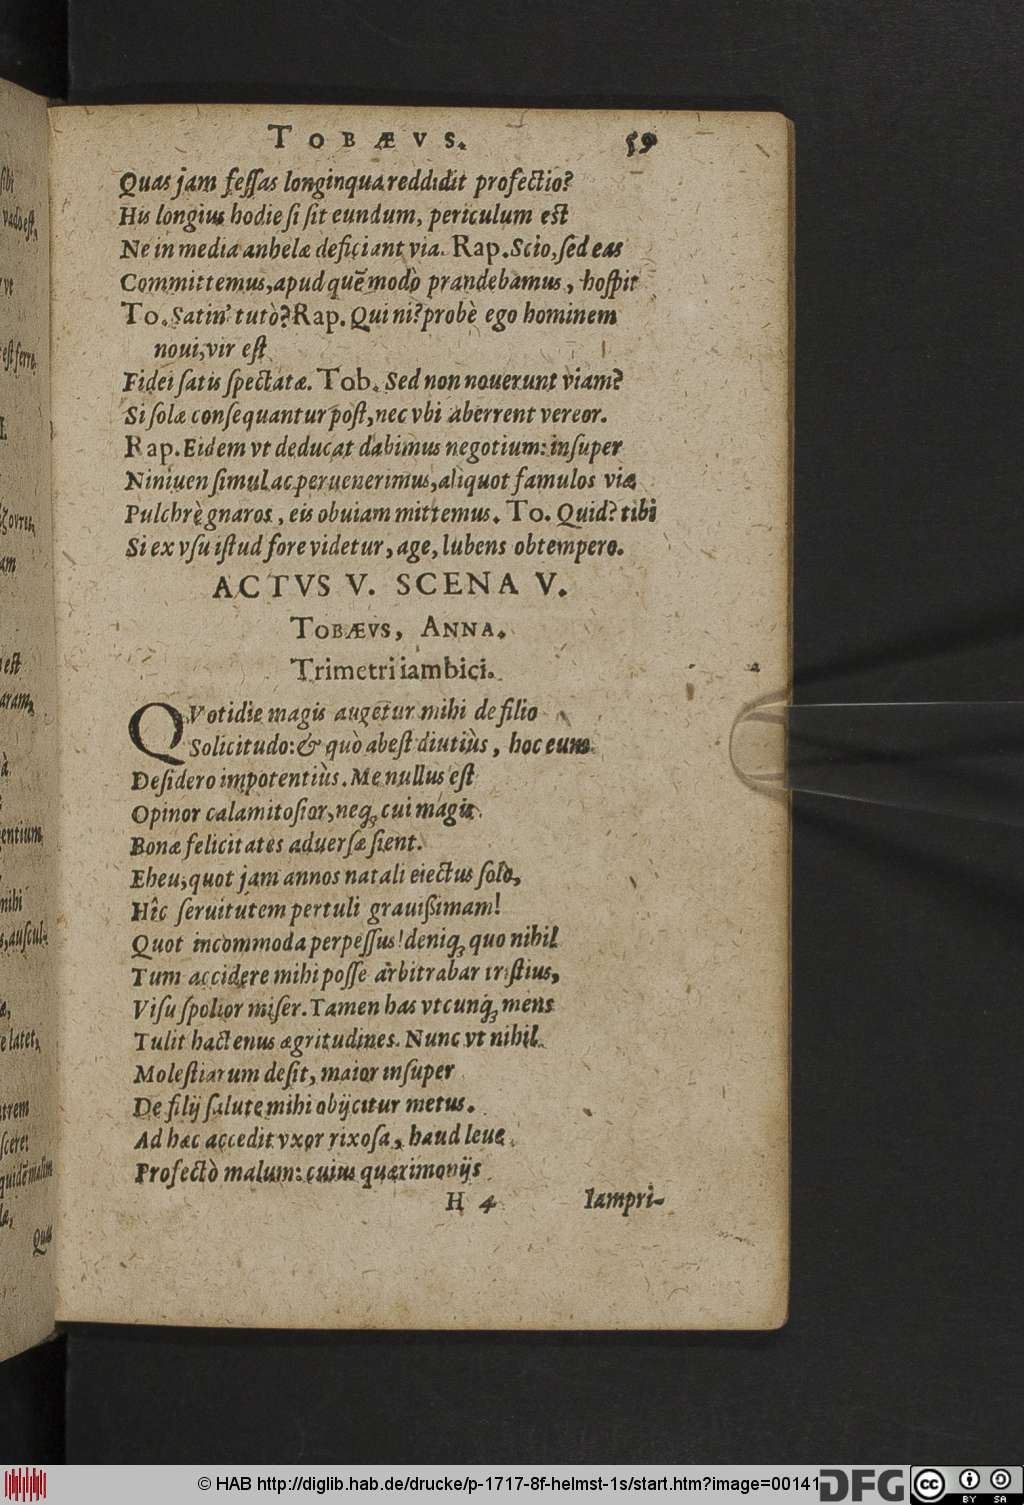 TOBÆVS. 59
Quas jam feſſas longinqua reddidit profectio?
His longius hodie ſi ſit eundum, periculum eſt
Ne in media anhelæ deficiant via. Rap. Scio, ſed eas
Committemus, apud quē modò prandebamus, hoſpit
To. Satin' tutò? Rap. Qui ni? probè ego hominem
noui, vir eſt
Fidei ſatis ſpectatæ. Tob. Sed non nouerunt viam?
Si ſolæ conſequantur poſt, nec vbi aberrent vereor.
Rap. Eidem vt deducat dabimus negotium: inſuper
Niniuen ſimul ac peruenerimus, aliquot famulos viæ
Pulchrè gnaros, eis obuiam mittemus. To. Quid? tibi
Si ex vſu iſtud fore videtur, age, lubens obtempero.
ACTVS V. SCENA V.
TOBÆVS, ANNA.
Trimetri iambici.
QVotidie magis augetur mihi de filio
Solicitudo: & quò abeſt diutiùs, hoc eum
Deſidero impotentiùs. Me nullus eſt
Opinor calamitoſior, neq; cui magis
Bonæ felicitates aduerſæ ſient.
Eheu, quot jam annos natali eiectus ſolo,
Hîc ſeruitutem pertuli grauiſsimam!
Quot incommoda perpeſſus! deniq; quo nihil
Tum accidere mihi poſſe arbitrabar triſtius,
Viſu ſpolior miſer. Tamen has vtcunq; mens
Tulit hactenus ægritudines. Nunc vt nihil
Moleſtiarum deſit, maior inſuper
De filij ſalute mihi obijcitur metus.
Ad hæc accedit vxor rixoſa, haud leue
Profectò malum: cuius quærimonijs
H 4 Iampri-
© HAB http://diglib.hab.de/drucke/p-1717-8f-helmst-1s/start.htm?image=00141
DFG
cc
BY SA